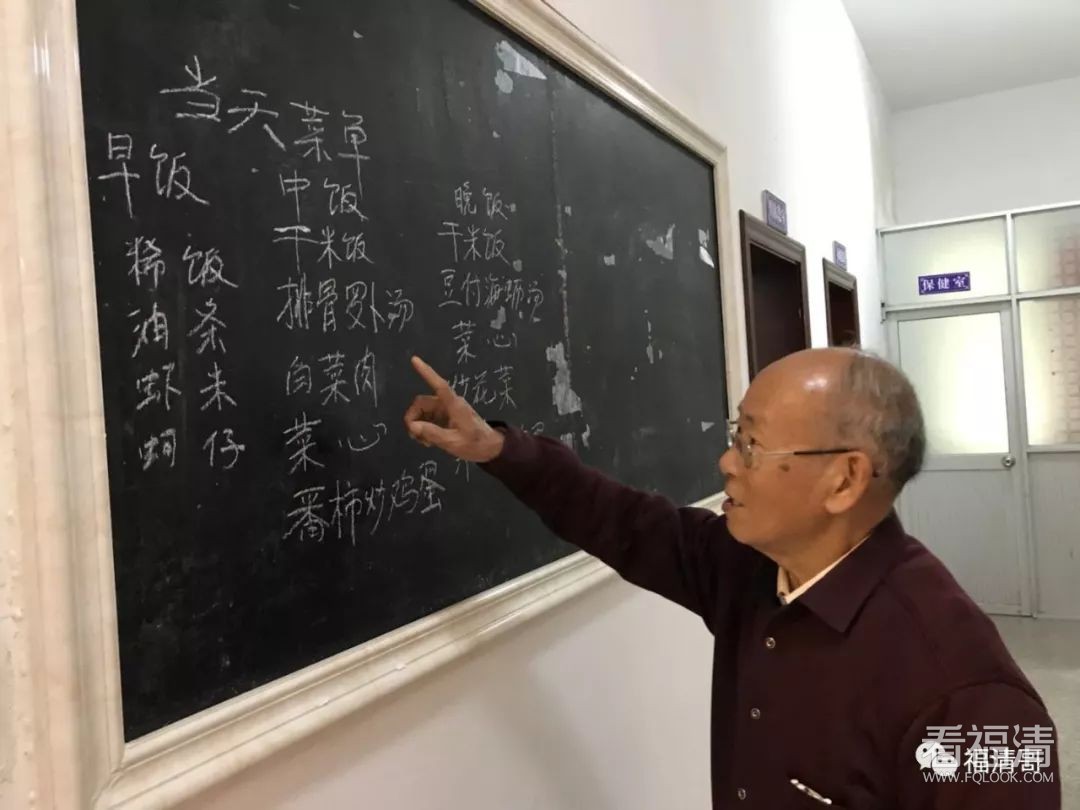 当天菜单
早饭
稀饭
油条
虾米
蚵仔
中饭
干米饭
排骨萝卜汤
白菜肉
菜心
番柿炒鸡蛋
晚饭
干米饭
豆付海蛎汤
菜心
花菜
保健室
看福清
福清哥
WWW.FQLOOK.COM